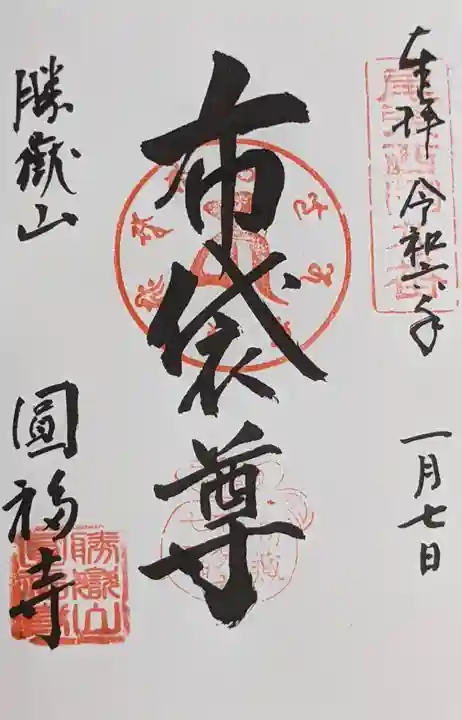 奉拝 令和六年
一月七日
布袋尊
勝嶽山
圓福寺
勝嶽山